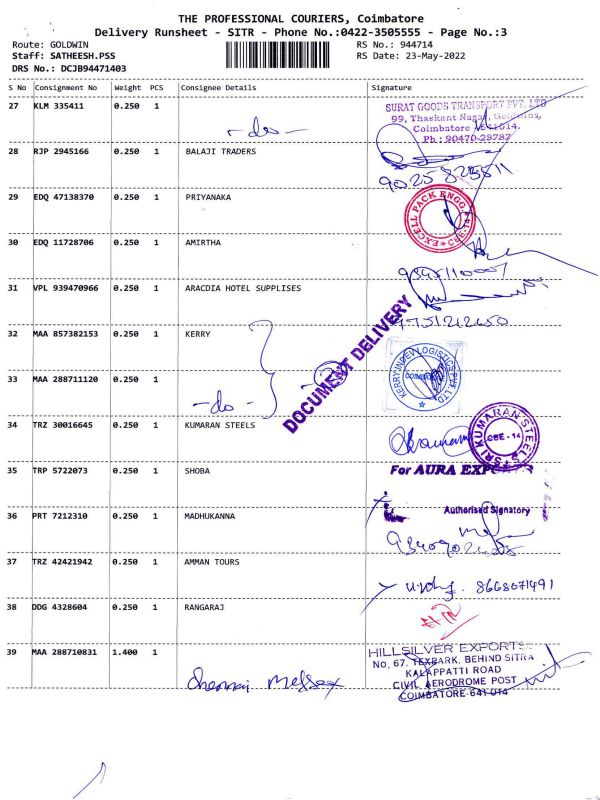 THE PROFESSIONAL COURIERS, Coimbatore
Delivery Runsheet - SITR - Phone No.:0422-3505555 - Page No.:3
Route: GOLDWIN RS No.: 944714
Staff: SATHEESH.PSS RS Date: 23-May-2022
DRS No.: DCJB94471403
S No Consignment No Weight PCS Consignee Details Signature
27 KLM 335411 0.250 1
SURAT GOODS TRANSPORT PVT. LTD
99, Thaskant Nagar, Goldwins,
Coimbatore 641014.
Ph : 90470-28787
-do-
28 RJP 2945166 0.250 1 BALAJI TRADERS
9025823511
29 EDQ 47138370 0.250 1 PRIYANAKA
EXCELL PACK ENGG CBE-14
30 EDQ 11728706 0.250 1 AMIRTHA
31 VPL 939470966 0.250 1 ARACDIA HOTEL SUPPLISES
9751212650
DOCUMENT DELIVERY
32 MAA 857382153 0.250 1 KERRY
KERRY INDEV LOGISTICS PVT. LTD
COIMBATORE
33 MAA 288711120 0.250 1
-do-
34 TRZ 30016645 0.250 1 KUMARAN STEELS
SRI KUMARAN STEELS
CBE - 14
35 TRP 5722073 0.250 1 SHOBA
For AURA EXPORTS
36 PRT 7212310 0.250 1 MADHUKANNA
Authorised Signatory
37 TRZ 42421942 0.250 1 AMMAN TOURS
8668071491
38 DDG 4328604 0.250 1 RANGARAJ
39 MAA 288710831 1.400 1
HILLSILVER EXPORTS
NO. 67. TEXPARK, BEHIND SITRA
KALAPPATTI ROAD
CIVIL AERODROME POST
COIMBATORE-641 014
Chennai